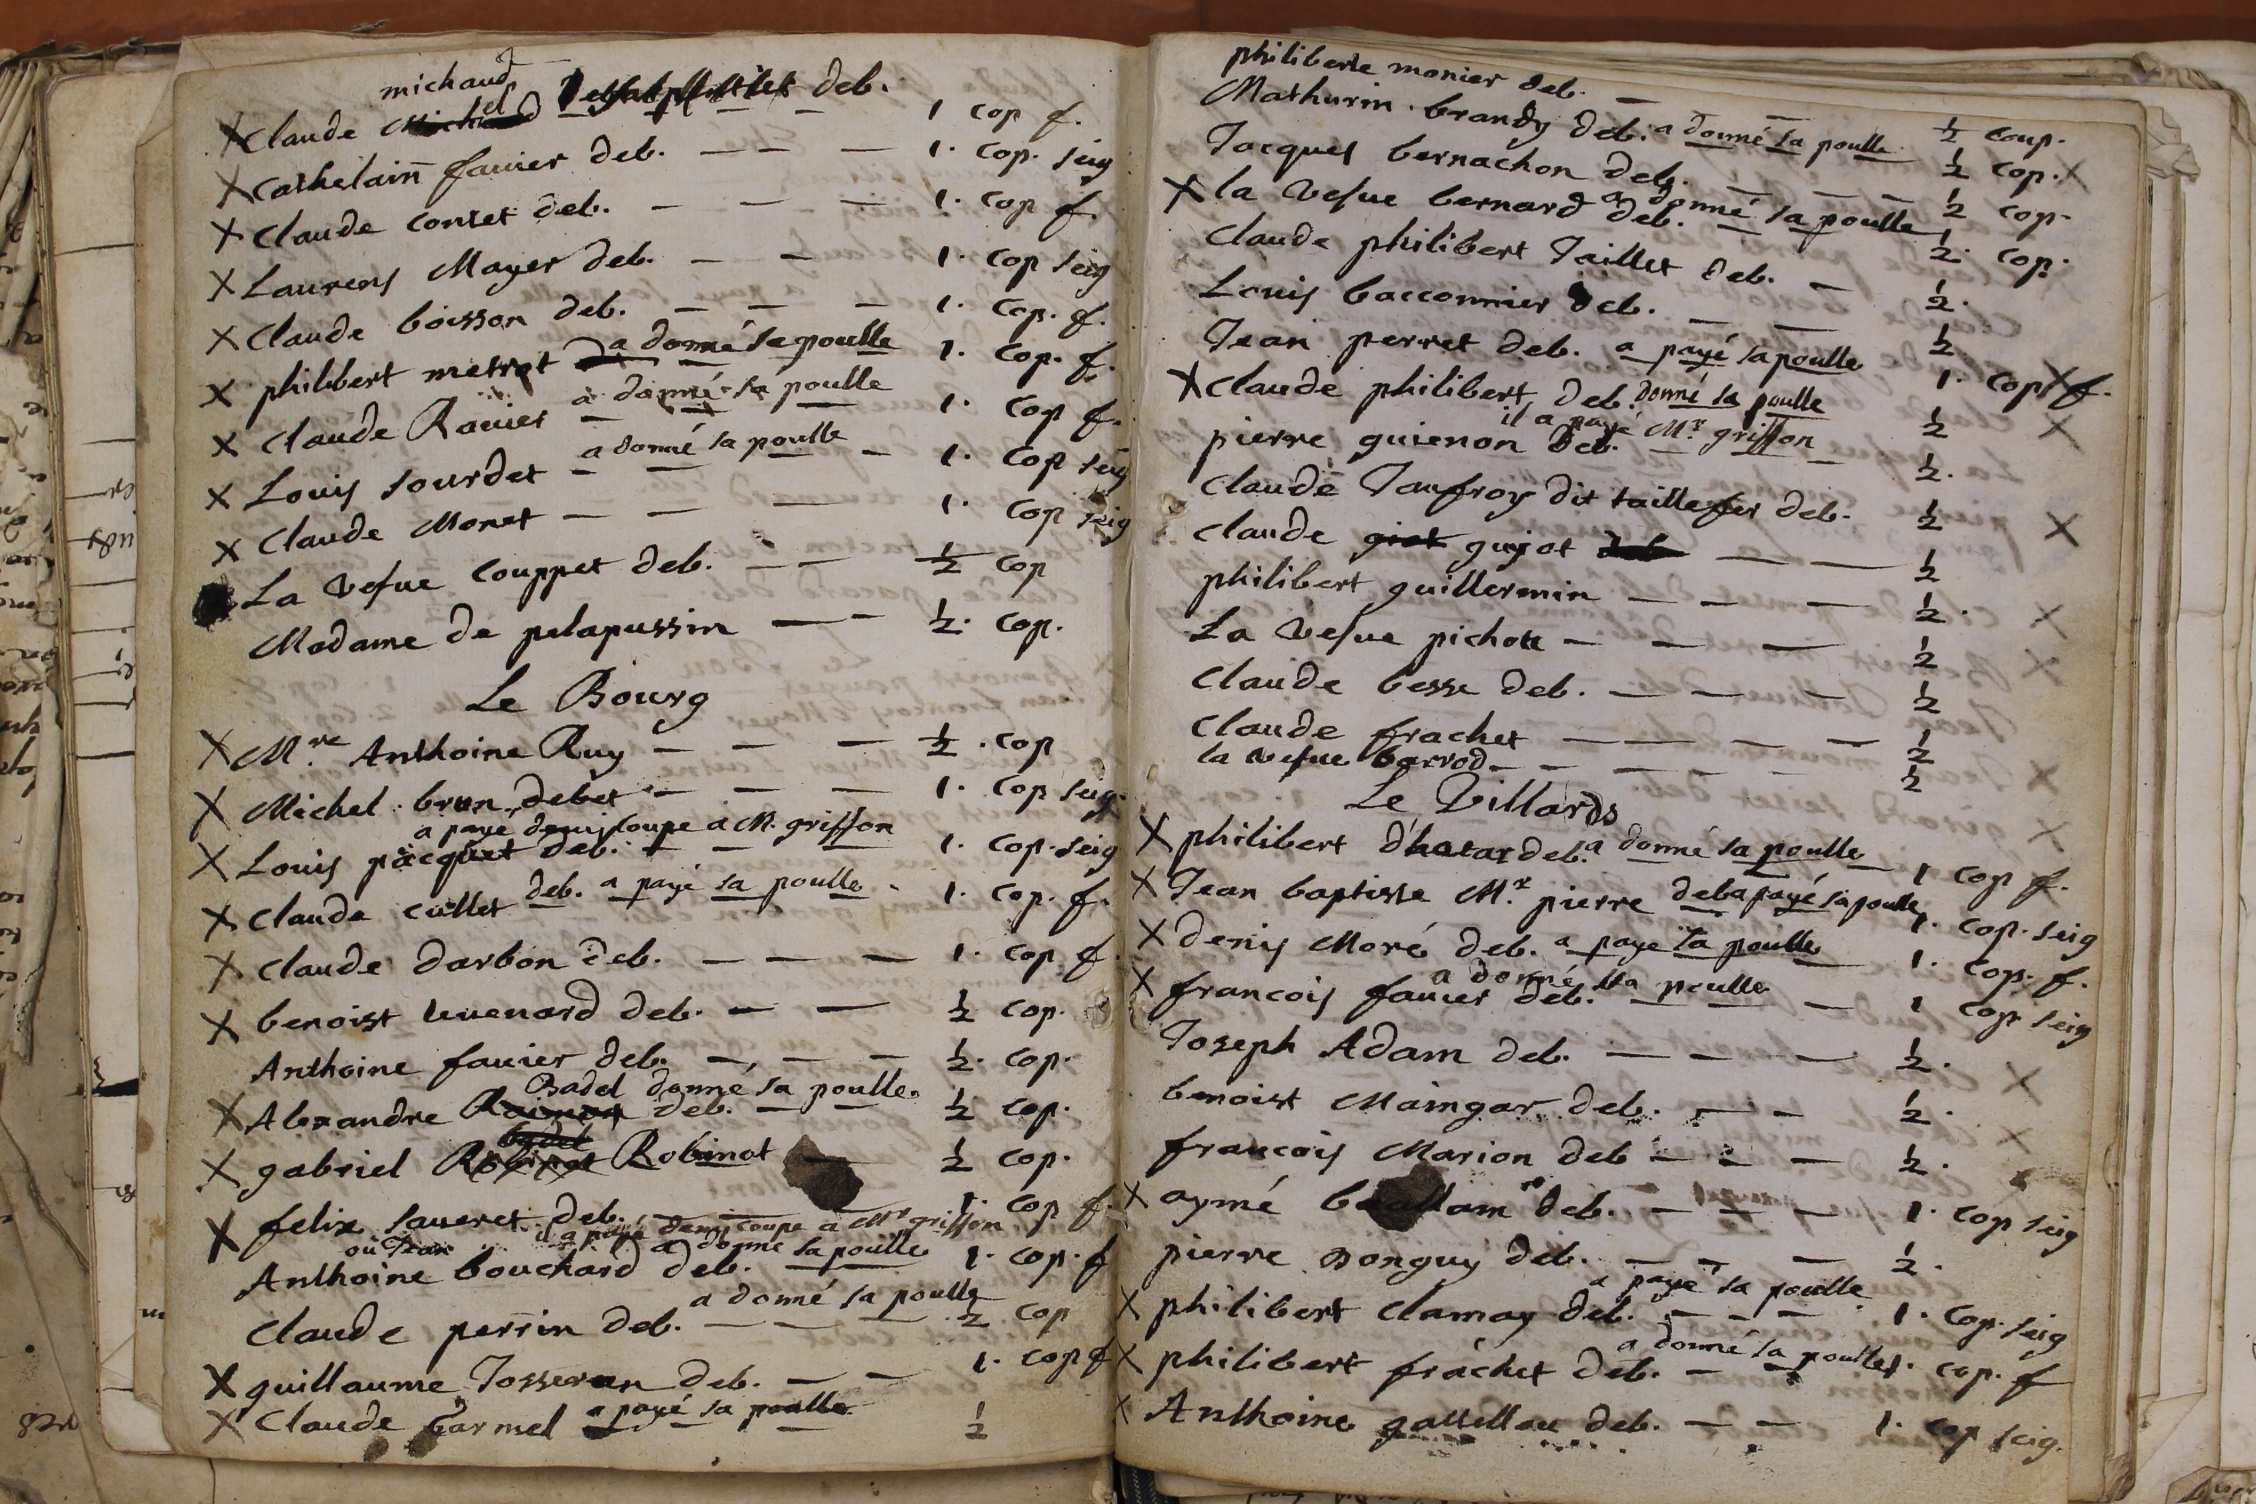 michaud
X Claude deb. 1 cop f.
X Cathelain favier deb. — — — 1. cop. seig
X Claude contet deb. — — — 1. cop f.
X Laurens Mayer deb. — — 1. cop seig
X Claude boisson deb. — — — 1. cop. f.
X philibert metrat a donné sa poulle 1. cop. f.
X Claude Ravier a donné sa poulle 1. cop f.
X Louis sourdet a donné sa poulle — 1. cop seig
X Claude Monet — — — 1. cop seig
La vefue couppet deb. — — ½ cop
Madame de pelapussin — — ½. cop.
Le Bourg
X M.re Anthoine Ruy — — — ½. cop
X Michel brun debet — — — 1. cop seig.
a payé demi coupe a M. griffon
X Louis pacquet deb. — — 1. cop. seig
X Claude cullet deb. a payé sa poulle. 1. cop. f.
X Claude darbon deb. — — — 1. cop f.
X benoist deb. — — ½ cop.
Anthoine favier deb. — — — ½. cop.
Badel donné sa poulle.
X Alexandre deb. — — ½ cop.
X gabriel Robinot — ½ cop.
X felix saveret deb. 1. cop f.
il a payé demi coupe a Mr griffon
ou Jean a donné sa poulle
Anthoine bouchard deb. 1. cop. f
a donné sa poulle
Claude perrin deb. — — — ½ cop
X guillaume Josseran deb. — — 1. cop f
X Claude Carmel a payé sa poulle ½
philiberte monier deb. — — ½ coup.
Mathurin brandy deb. a donné sa poulle ½ cop. X
Jacques bernachon deb. — — — ½ cop.
a donné sa poulle
X la vefue bernard deb. ½ cop.
Claude philibert Taillet deb. — ½.
Louis bacconnier deb. — — ½
Jean perret deb. a payé sa poulle 1. cop f.
X Claude philibert deb. donné sa poulle ½ X
il a payé Mr griffon
pierre guienon deb. — ½.
Claude Jaufroy dit taillefer deb. ½ X
Claude guyot — — ½
philibert guillermin — — — ½. X
La vefue pichon — — — ½ X
Claude besse deb. — — — ½
Claude frachet — — — — ½ X
la vefue barrod — — — — ½
Le Villards
X philibert deb. a donné sa poulle 1 cop f.
X Jean baptiste Mr pierre deb a payé sa poulle 1. cop. seig
X denis Moré deb. a payé sa poulle 1. cop. f.
a donné sa poulle
X francois favier deb. — — 1 cop seig
Joseph Adam deb. — — — ½. X
benoist Maingar deb. — — ½. X
francois Marion deb — — — ½.
X aymé deb. — — — 1. cop seig
pierre Bonguy deb. — — — ½.
a payé sa poulle
X philibert clamay deb. — — — 1. cop. seig
a donné sa poulle
X philibert frachet deb. — — 1. cop. f
X Anthoine deb. — — 1. cop seig.